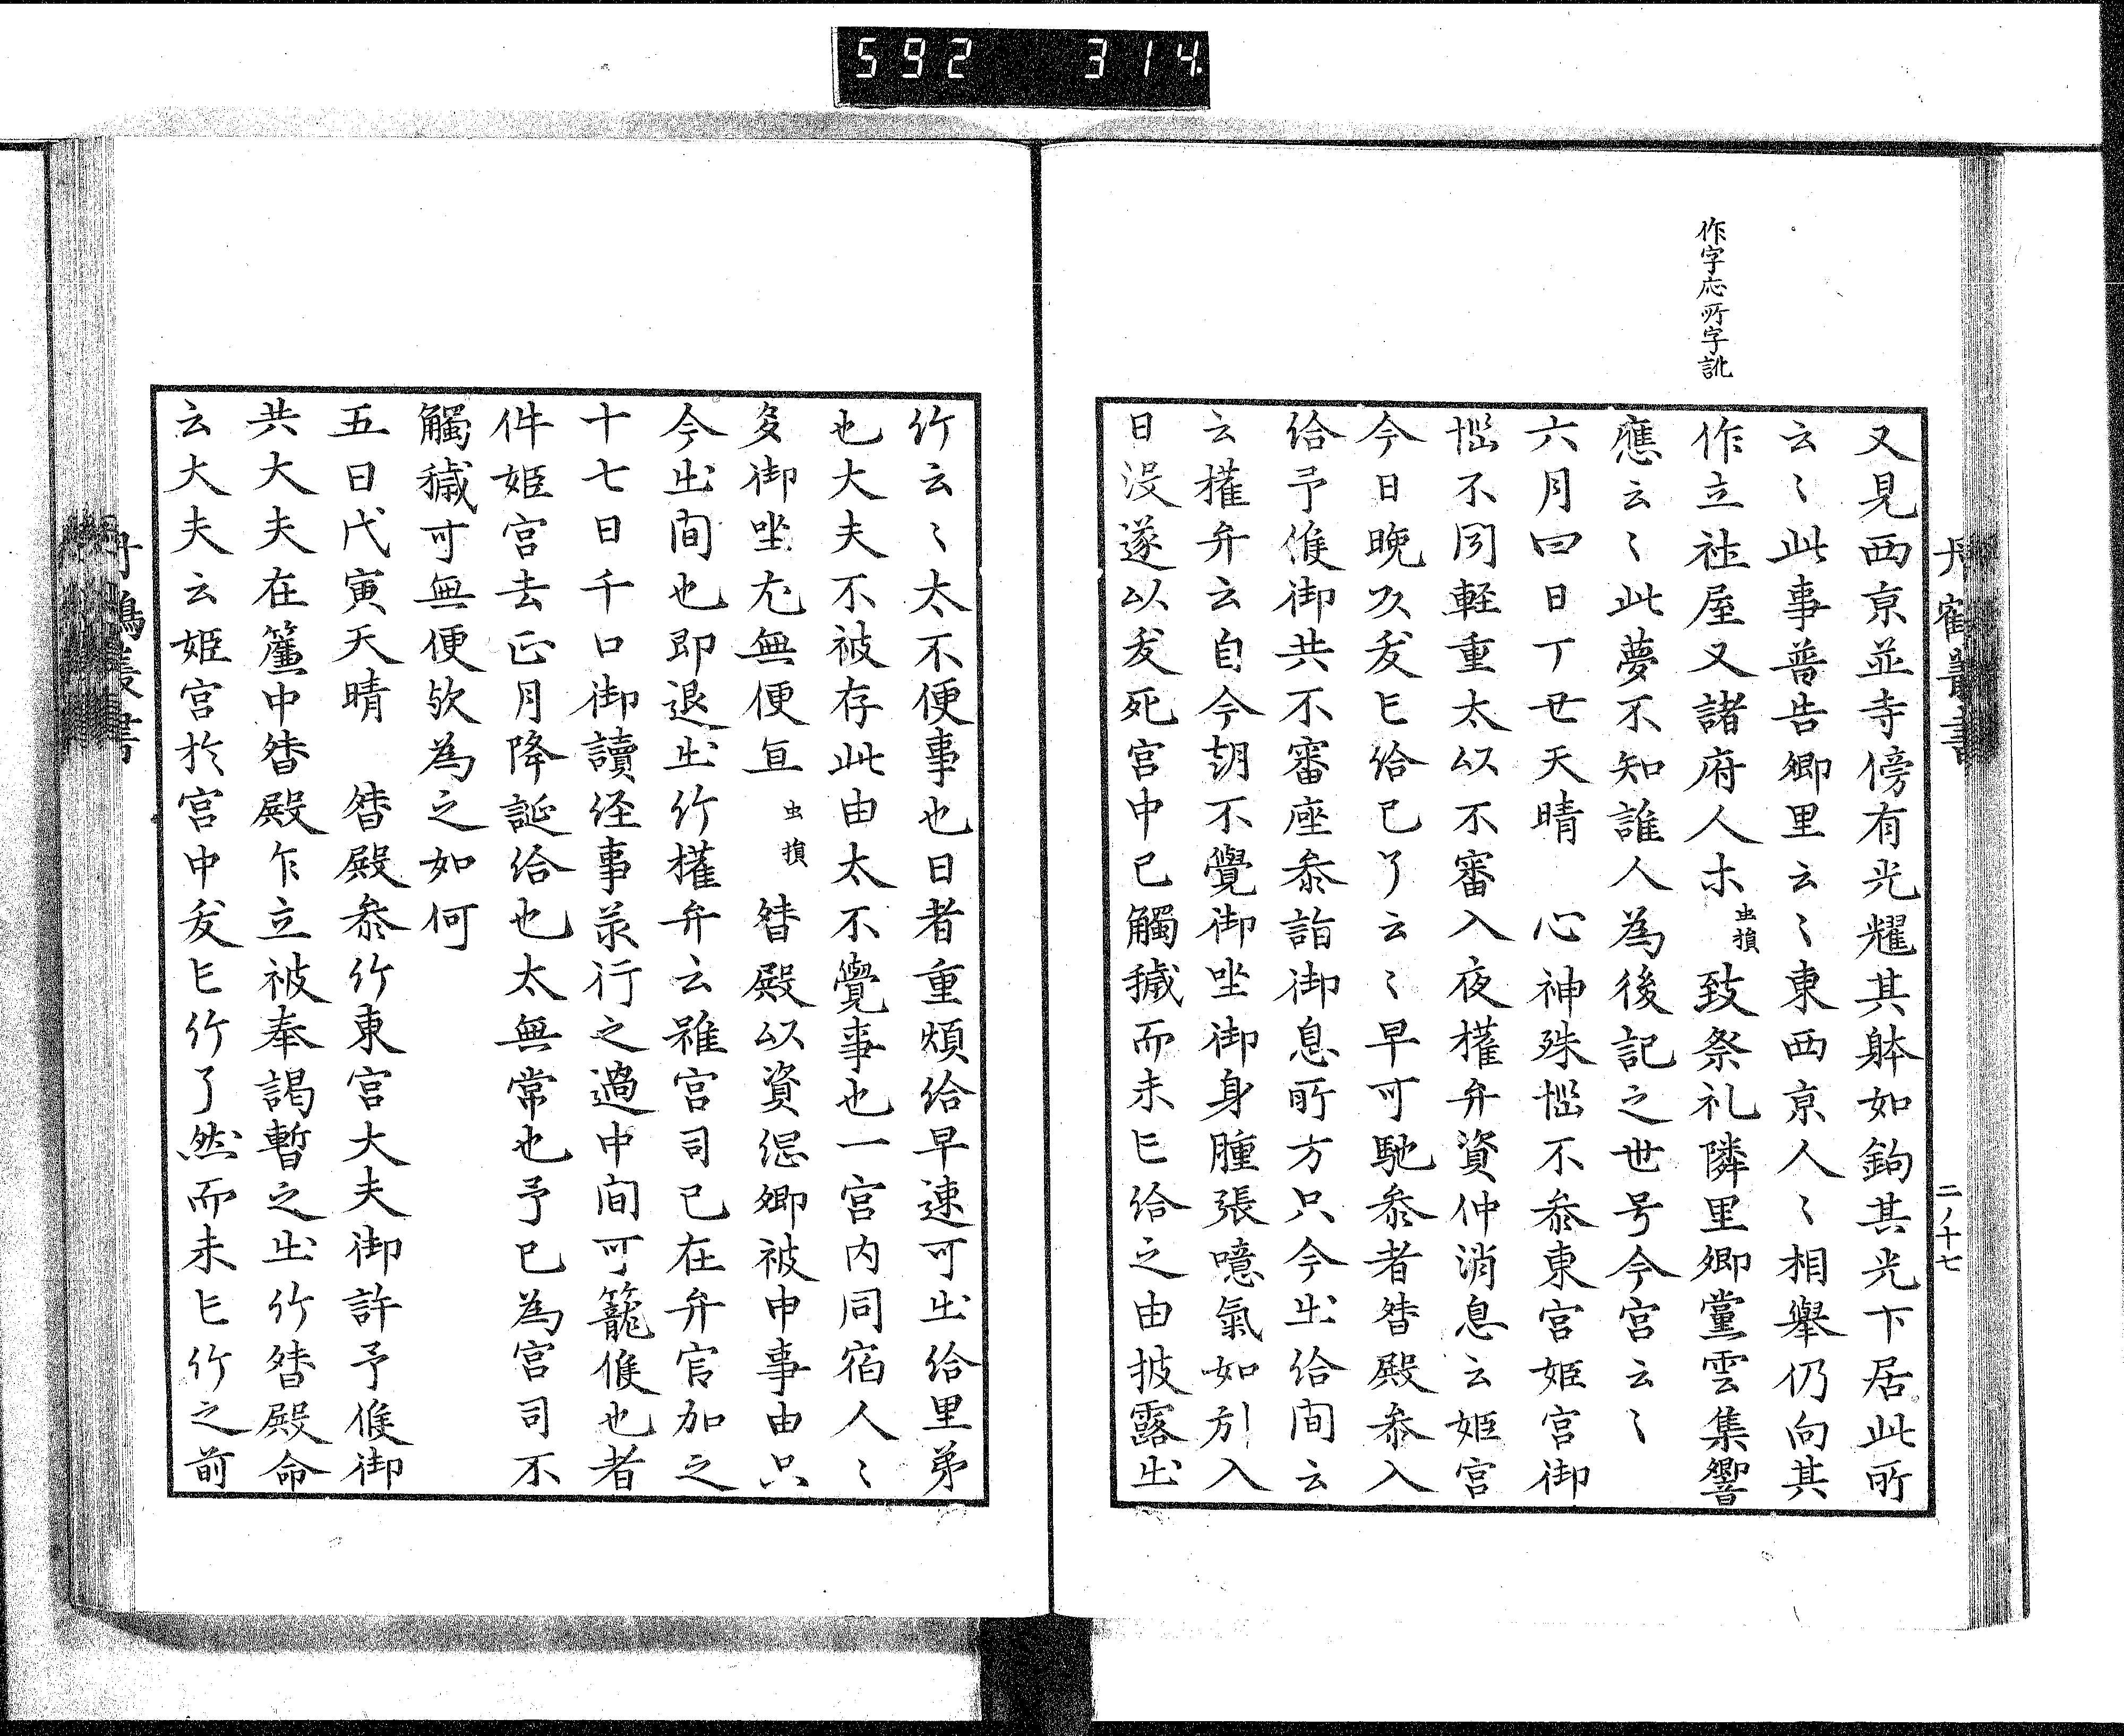 592 314.
丹鶴叢書
二ノ十七
作字応所字訛
又見西京並寺傍有光耀其躰如鉤其光下居此所
云〻此事普告卿里云〻東西京人〻相舉仍向其
作立社屋又諸府人木虫損致祭礼隣里卿黨雲集響
應云〻此夢不知誰人為後記之世号今宮云〻
六月曰日丁丗天晴　心神殊惱不叅東宮姫宮御
惱不同軽重太以不審入夜權弁資仲消息云姫宮
今日晩久㕝亡給已了云〻早可馳叅者昝殿叅入
給予候御共不審座叅詣御息所方只今出給間云
云權弁云自今朝不覺御坐御身腫張噫氣如引入
日没遂以㕝死宮中已觸穢而未亡給之由披露出
行云〻太不便事也日者重煩給早速可出給里弟
也大夫不被存此由太不覺事也一宮内同宿人〻
多御坐尤無便亘虫損昝殿以資綱卿被申事由只
今出間也即退出行權弁云雖宮司已在弁官加之
十七日千口御讀経事㒵行之過中間可籠候也者
件姫宮去正月降誕給也太無常也予已為宮司不
觸穢可無便欤為之如何
五日代寅天晴　昝殿叅行東宮大夫御許予候御
共大夫在簾中昝殿乍立被奉謁暫之出行昝殿命
云大夫云姫宮於宮中㕝亡行了然而未亡行之前
丹鶴叢書